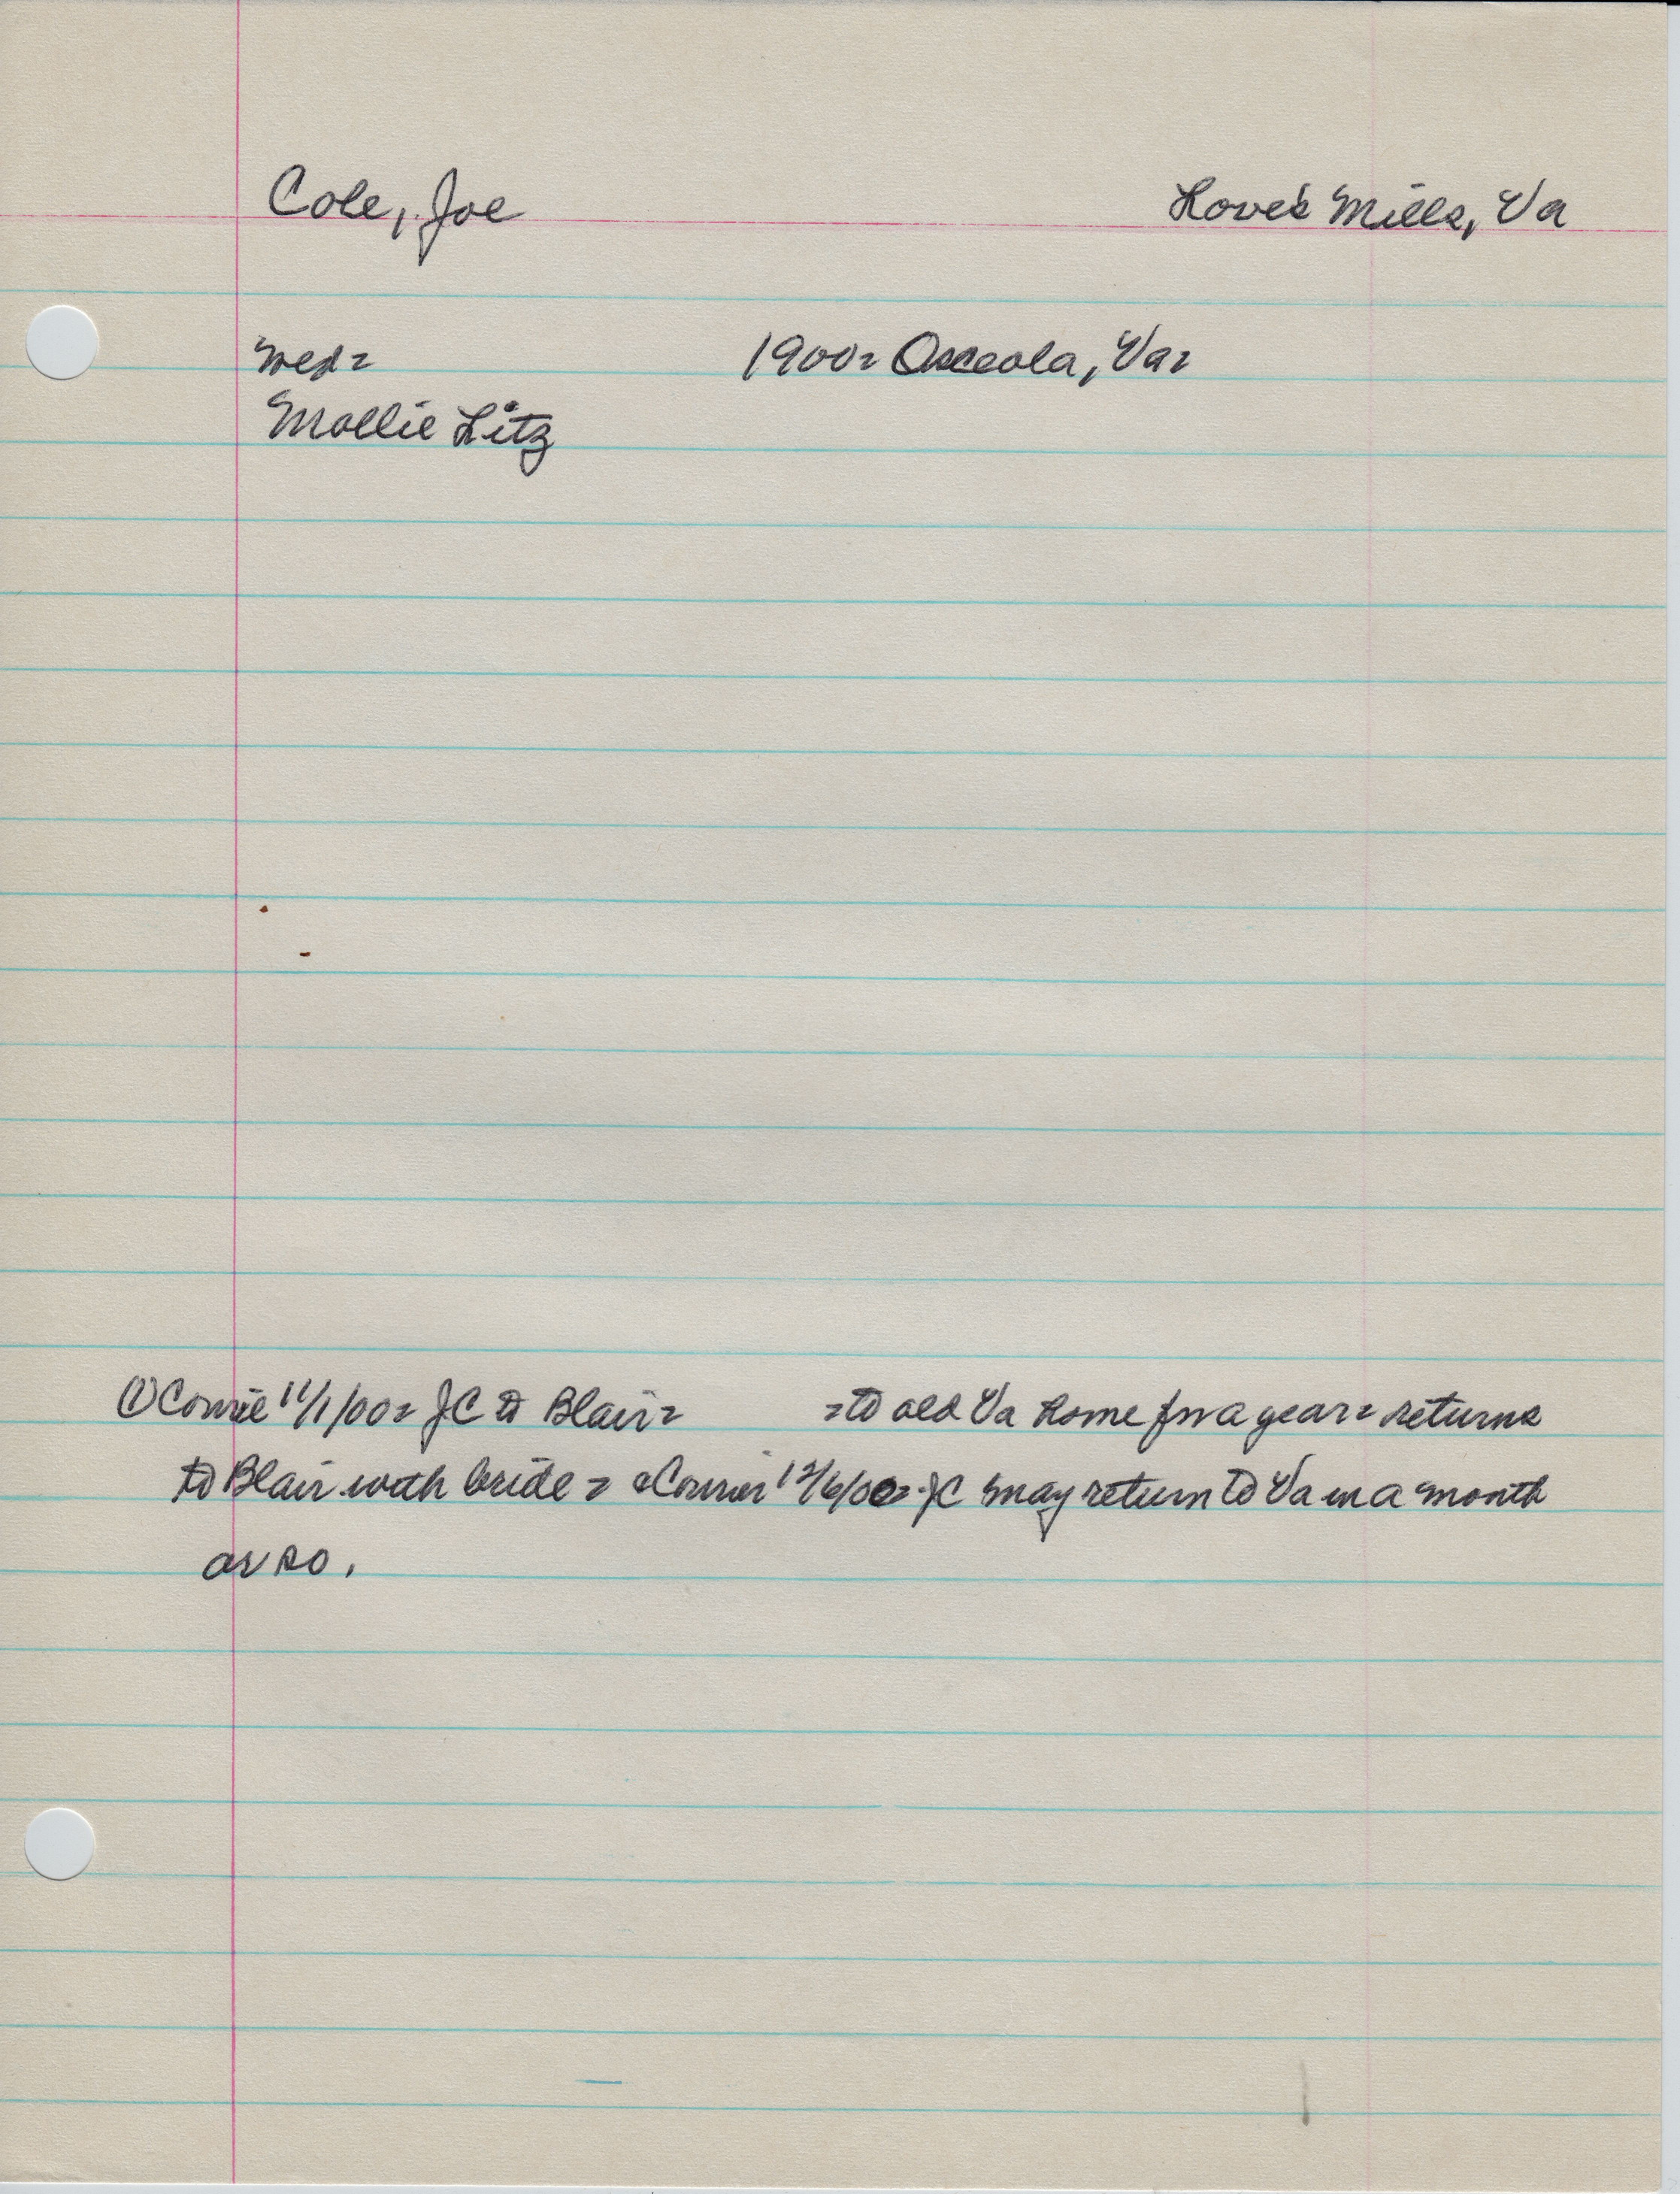 Cole, Joe Love's Mills, Va
wed= 1900= Osceola, Va=
Mollie Litz
① Courie 11/1/00= JC to Blair= =to old Va home for a year= returns
to Blair with bride = Courier 12/6/00= JC may return to Va in a month
or so.